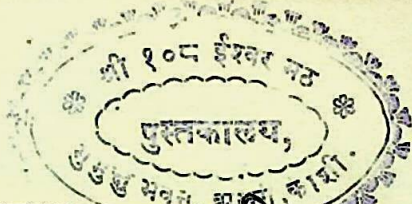 श्री १०८ ईश्वर मठ
पुस्तकालय,
मुमुक्षु भवन काशी.